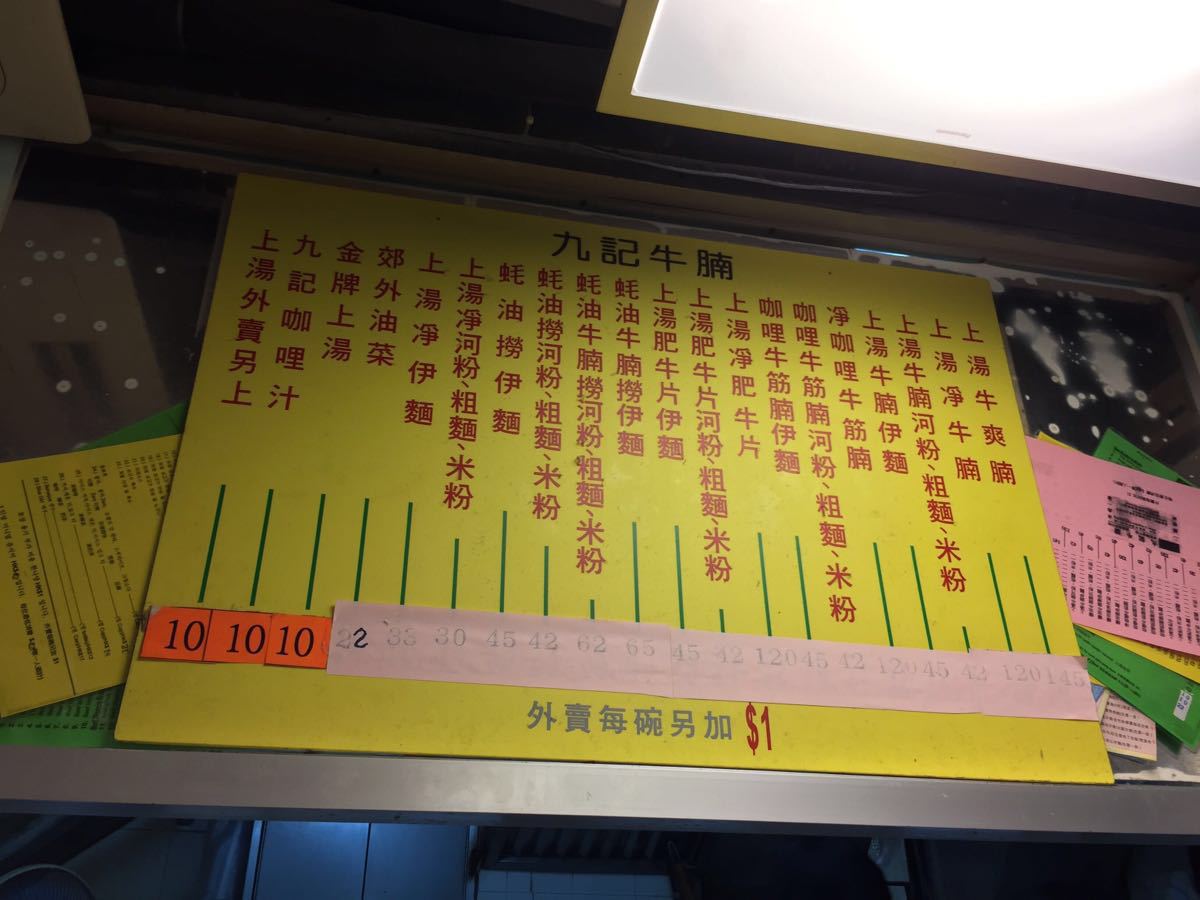 九記牛腩
上湯牛爽腩 145
上湯凈牛腩 120
上湯牛腩河粉、粗麵、米粉 42
上湯牛腩伊麵 45
凈咖哩牛筋腩 120
咖哩牛筋腩河粉、粗麵、米粉 42
咖哩牛筋腩伊麵 45
上湯凈肥牛片 120
上湯肥牛片河粉、粗麵、米粉 42
上湯肥牛片伊麵 45
蚝油牛腩撈伊麵 65
蚝油牛腩撈河粉、粗麵、米粉 62
蚝油撈河粉、粗麵、米粉 42
蚝油撈伊麵 45
上湯凈河粉、粗麵、米粉 30
上湯凈伊麵 33
郊外油菜 22
金牌上湯 10
九記咖哩汁 10
上湯外賣另上 10
外賣每碗另加 $1